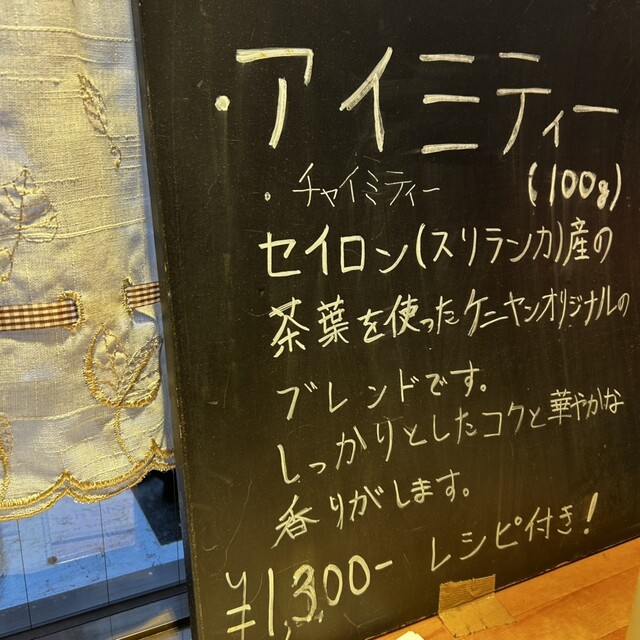 ・アイミティー
・チャイミティー (100g)
セイロン(スリランカ)産の
茶葉を使ったケニヤンオリジナルの
ブレンドです。
しっかりとしたコクと華やかな
香りがします。
¥1,300- レシピ付き!